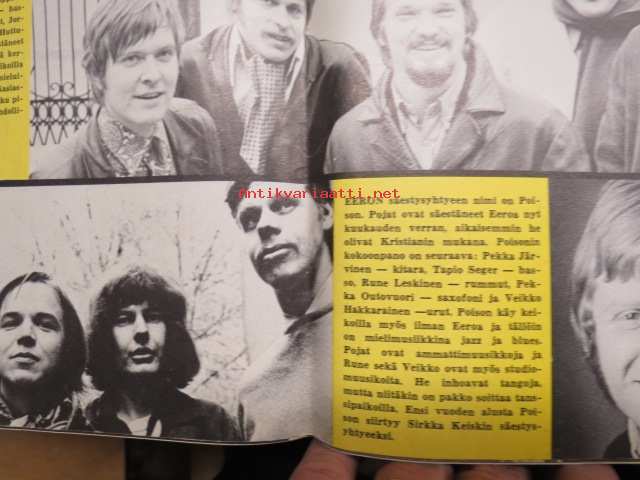 — bas-
t, Jor-
Huttu-
täneet
ä ker-
koilla
ku pi-
hdolli-
Antikvariaatti.net
EERON säestysyhtyeen nimi on Poi-
son. Pojat ovat säestäneet Eeroa nyt
kuukauden verran, aikaisemmin he
olivat Kristianin mukana. Poisonin
kokoonpano on seuraava: Pekka Jär-
vinen — kitara, Tapio Seger — bas-
so, Rune Leskinen — rummut, Pek-
ka Outovuori — saxofoni ja Veikko
Hakkarainen —urut. Poison käy kei-
koilla myös ilman Eeroa ja tällöin
on mielimusiikkina jazz ja blues.
Pojat ovat ammattimuusikkoja ja
Rune sekä Veikko ovat myös studio-
muusikoita. He inhoavat tangoja,
mutta niitäkin on pakko soittaa tans-
sipaikoilla. Ensi vuoden alusta Poi-
son siirtyy Sirkka Keiskin säestys-
yhtyeeksi.